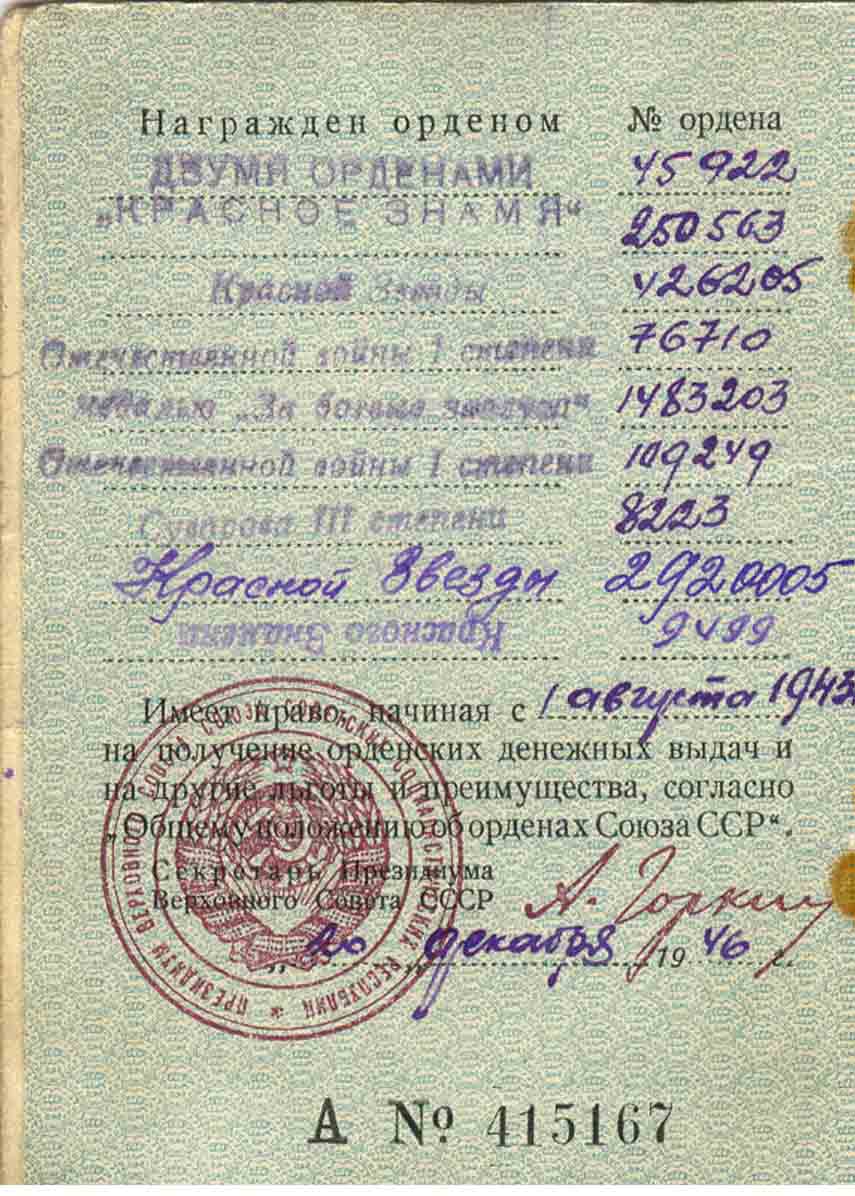 Награжден орденом № ордена
ДВУМЯ ОРДЕНАМИ 45922
„КРАСНОЕ ЗНАМЯ“ 250563
Красной Звезды 426205
Отечественной войны I степени 76710
медалью „За боевые заслуги“ 1483203
Отечественной войны I степени 109249
Суворова III степени 8223
Красной Звезды 2920005
Красного Знамени 9499
Имеет право, начиная с 1 августа 1943
на получение орденских денежных выдач и
на другие льготы и преимущества, согласно
„Общему положению об орденах Союза ССР“.
Секретарь Президиума
Верховного Совета СССР А. Горкин
„20 „ декабря 1946 г.
ПРЕЗИДИУМ ВЕРХОВНОГО СОВЕТА СОЮЗА СОВЕТСКИХ СОЦИАЛИСТИЧЕСКИХ РЕСПУБЛИК *
А № 415167